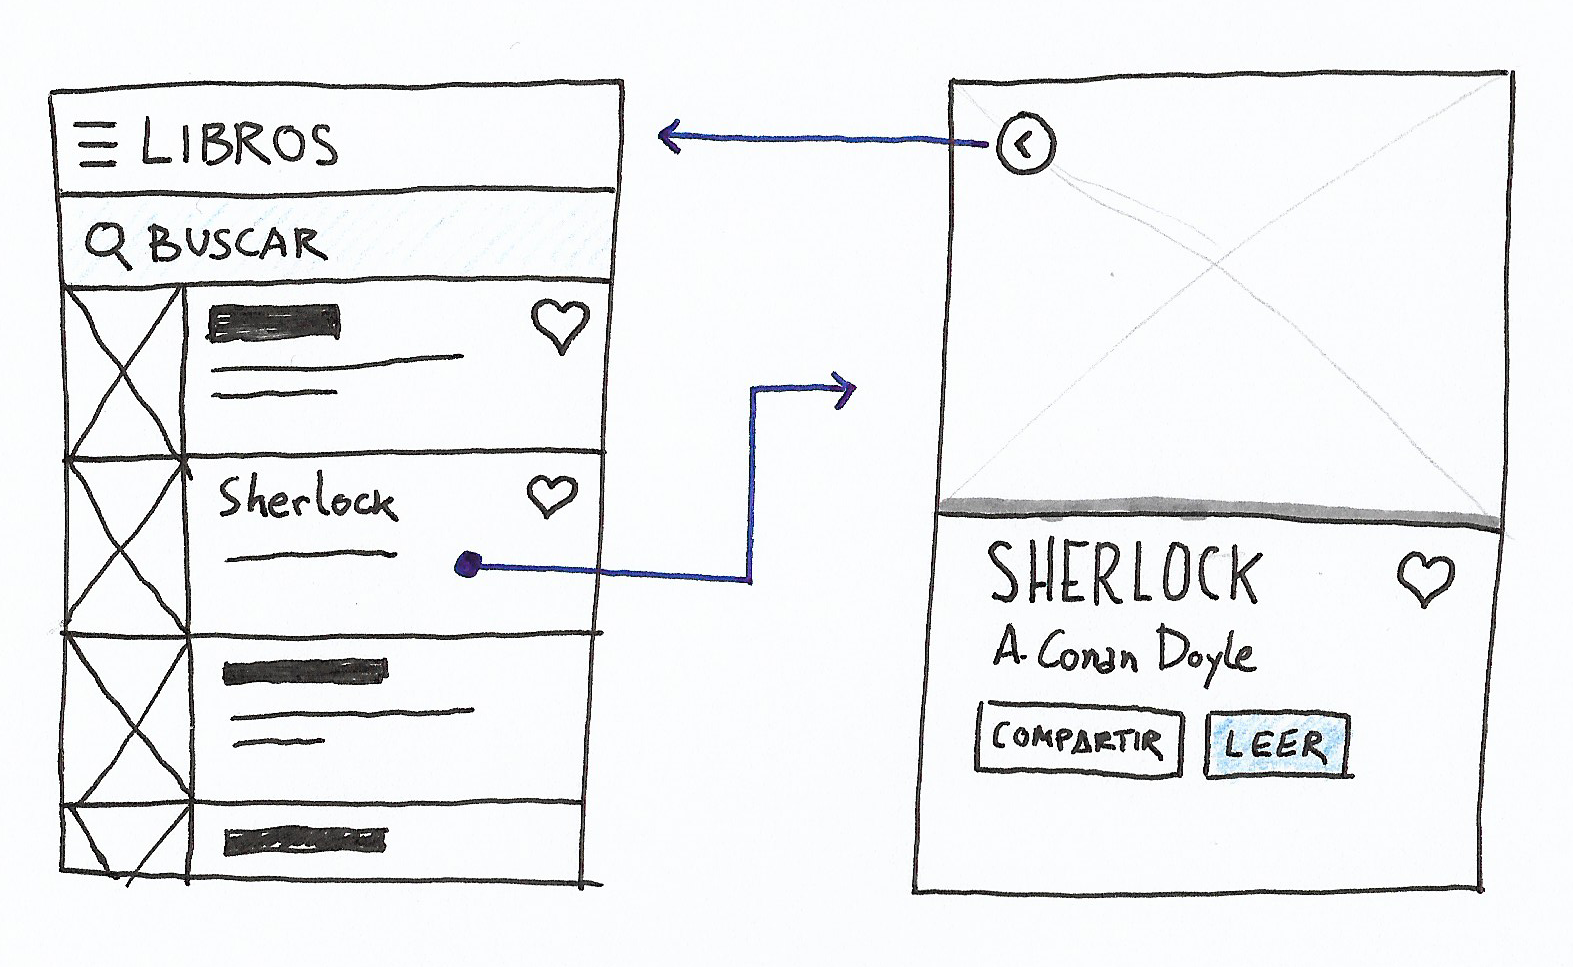 LIBROS
BUSCAR
Sherlock
SHERLOCK
A. Conan Doyle
COMPARTIR
LEER